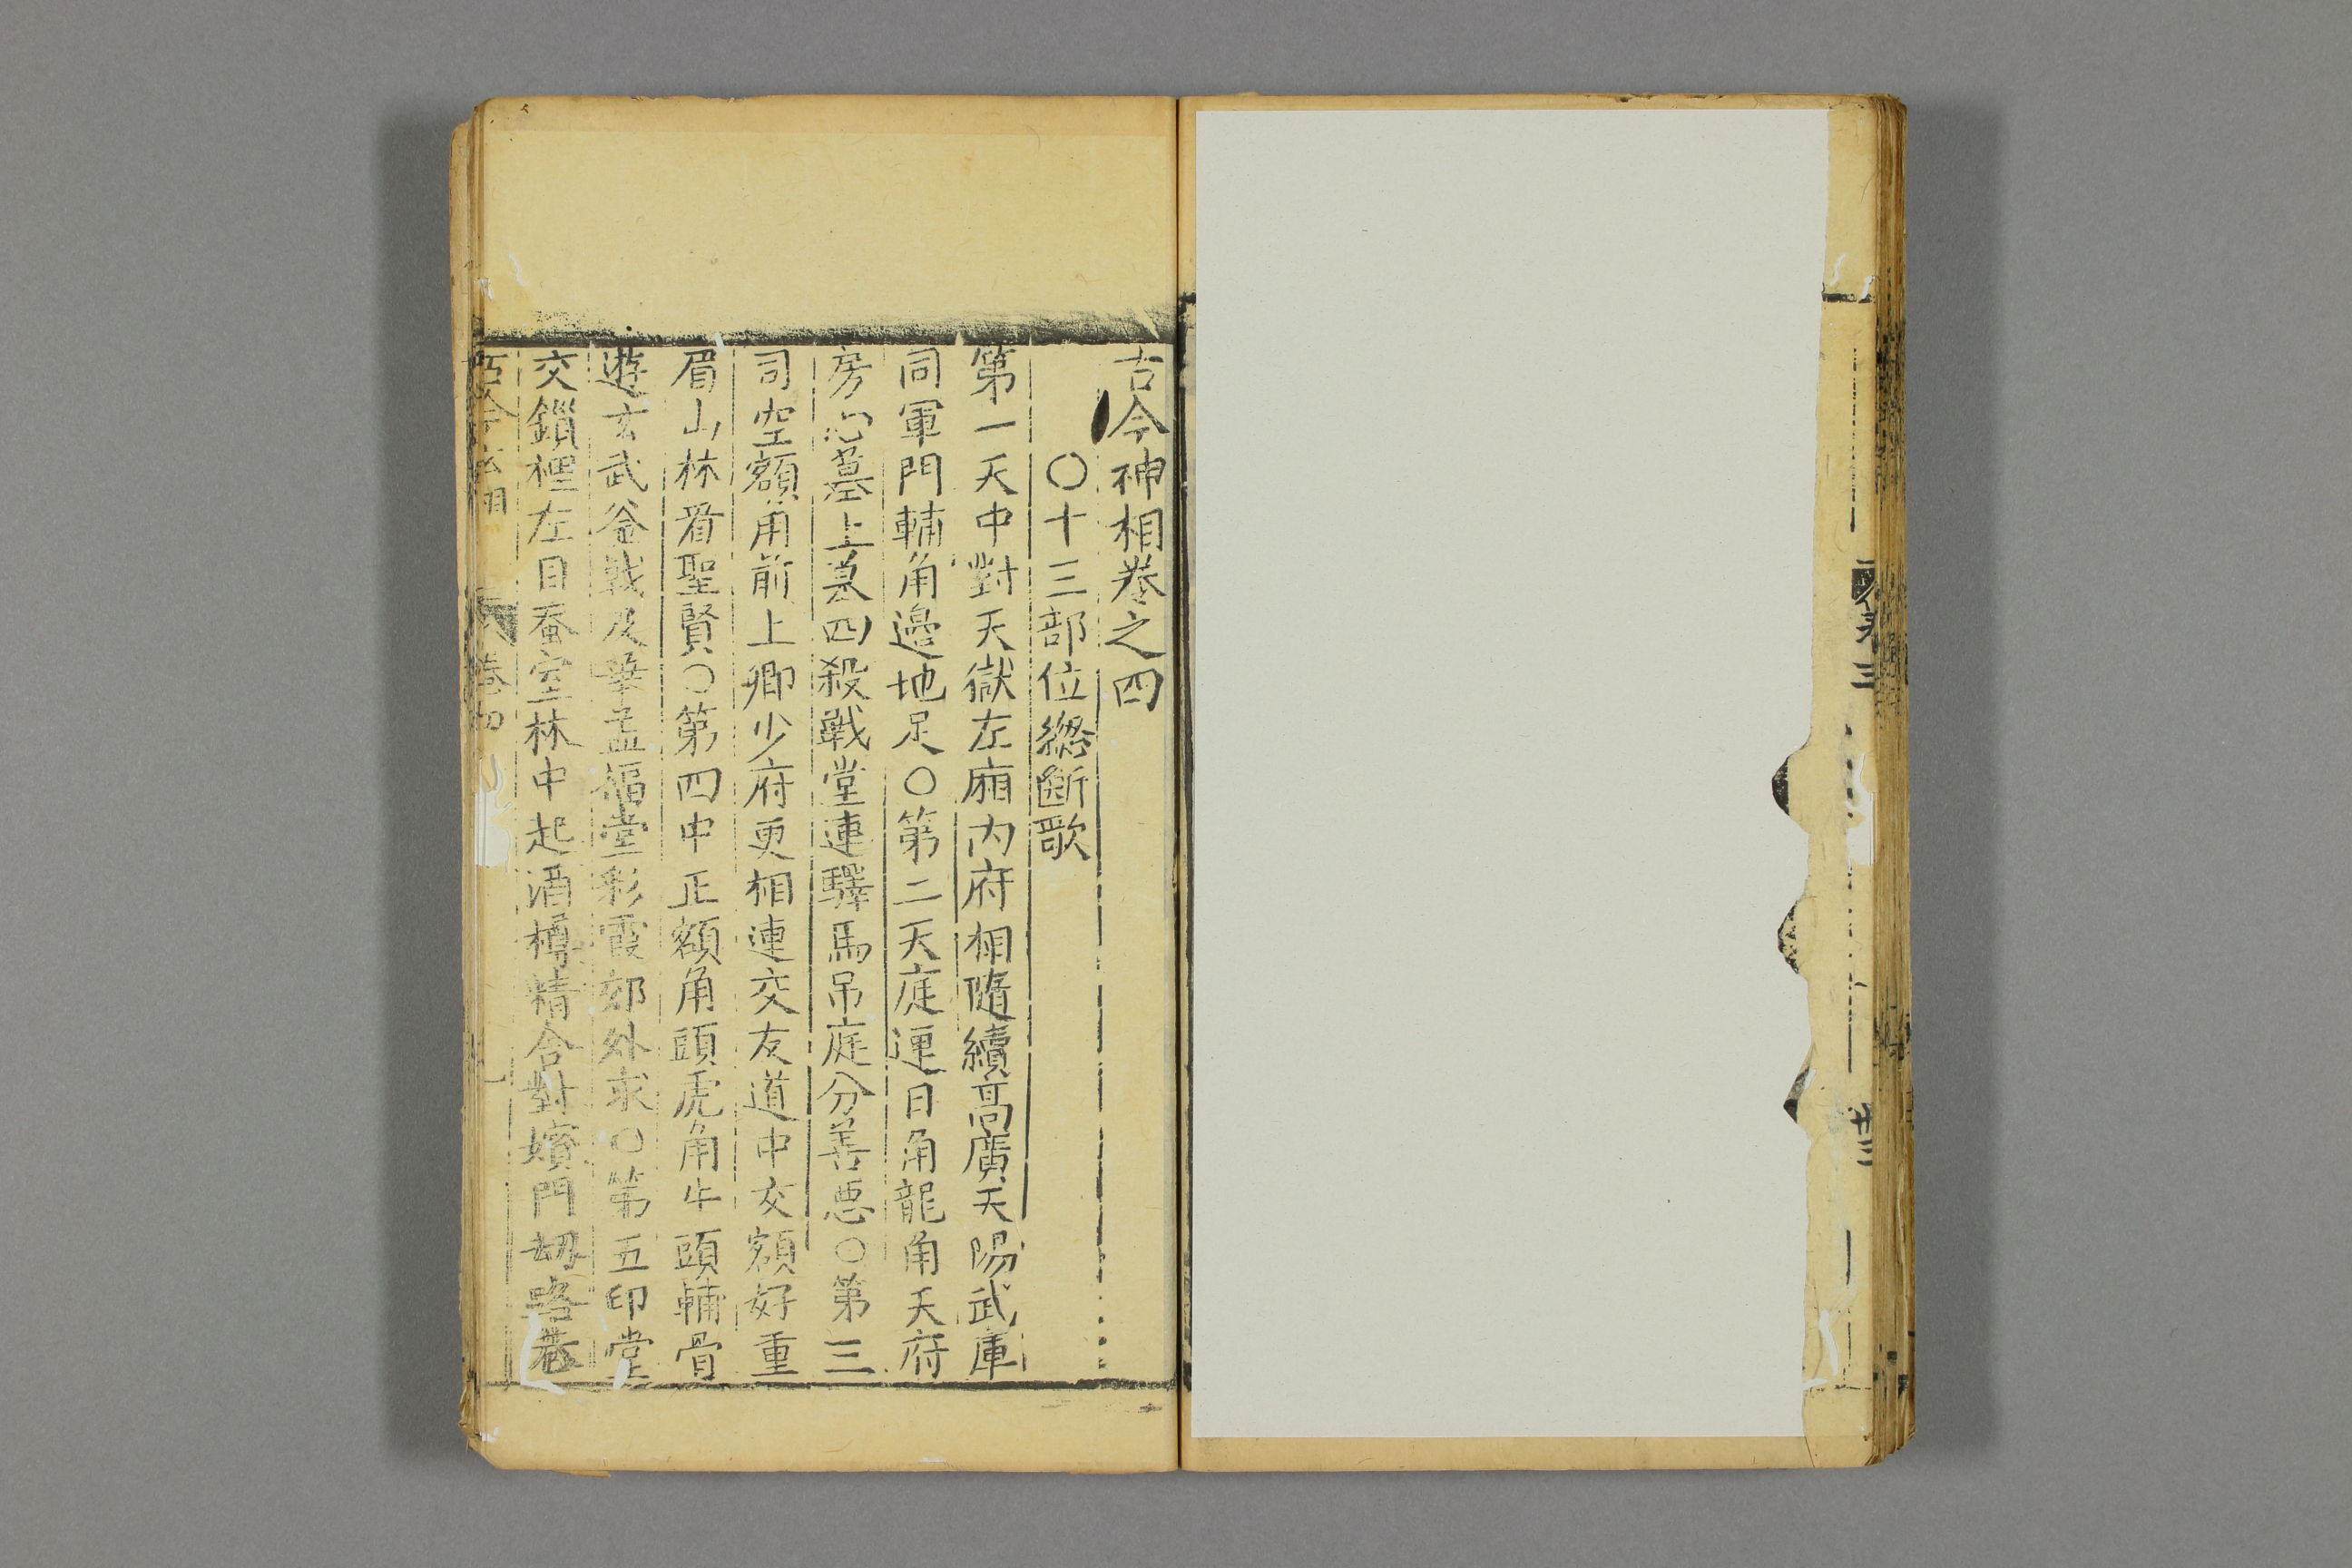 卷三
廿三
古今神相卷之四
○十三部位總斷歌
第一天中對天嶽左廂內府相隨續髙廣天陽武庫
同軍門輔角邉地足○第二天庭連日角龍角天府
房心墓上墓四殺戰堂連驛馬吊庭分善惡○第三
司空額角前上卿少府更相連交友道中交額好重
眉山林看聖賢○第四中正額角頭虎角牛頭輔骨
遊玄武釜戟及華盖福堂彩霞郊外求○第五印堂
交鎖裡左目蚕室林中起酒樽精舍對嬪門刧路巷
古今相 卷四